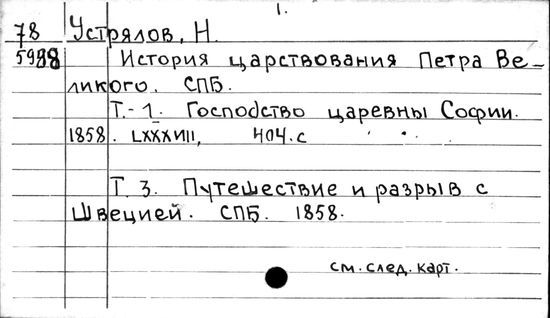 1.
78 Устрялов, Н.
5988 История царствования Петра Ве-
ликого. СПБ.
Т.-1. Господство царевны Софии.
1858. LXXXVIII, 404.с
Т. 3. Путешествие и разрыв с
Швецией. СПБ. 1858.
см. след. карт.